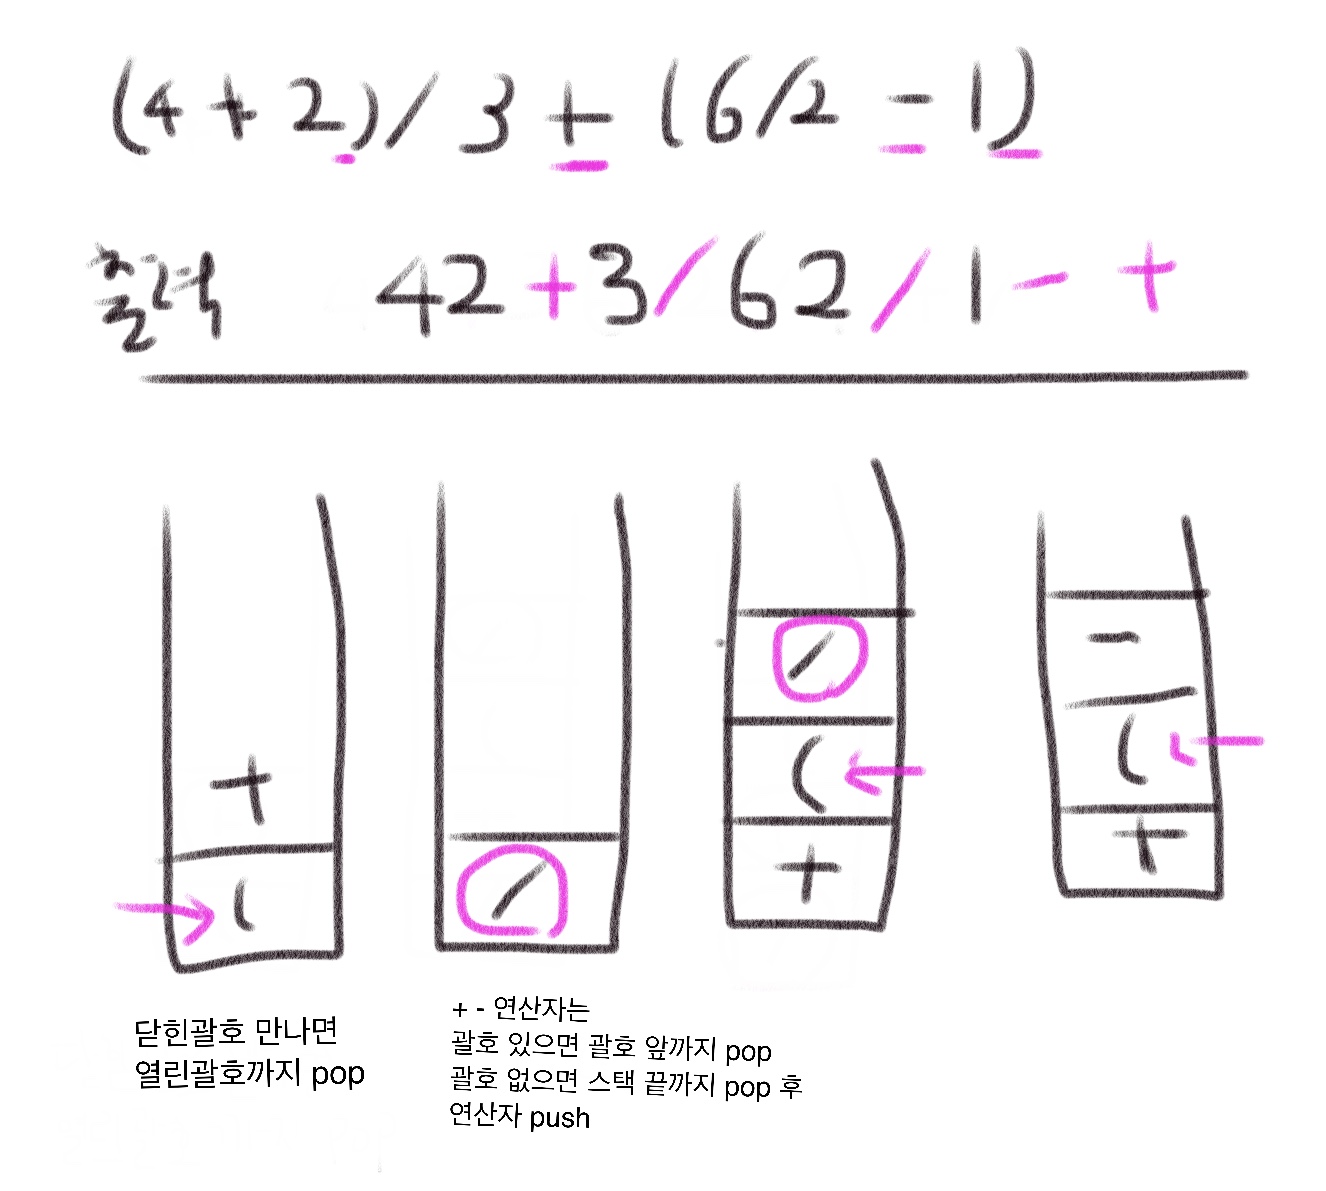 (4+2)/3+(6/2-1)
출력 42+3/62/1-+
+
(
/
/
(
+
-
(
+
닫힌괄호 만나면
열린괄호까지 pop
+ - 연산자는
괄호 있으면 괄호 앞까지 pop
괄호 없으면 스택 끝까지 pop 후
연산자 push